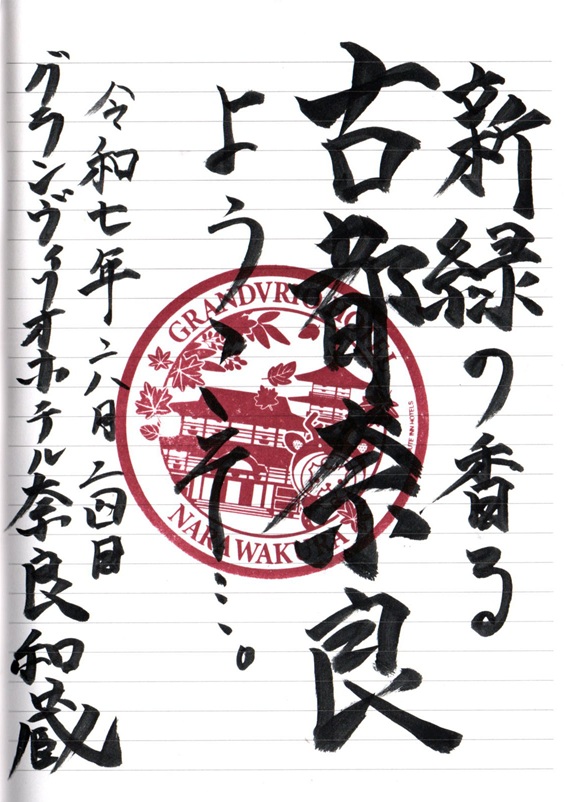 新緑の香る
古都奈良
ようこそ…。
令和七年 六月 二四日
グランヴィリオホテル奈良和蔵
GRANDVRIO HOTEL
NARA WAKURA
ROUTE INN HOTELS